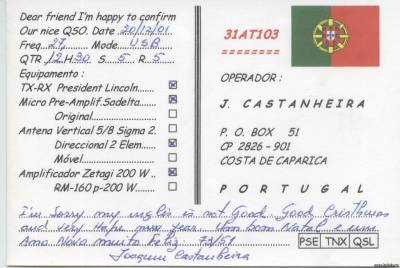 Dear friend I'm happy to confirm
Our nice QSO. Date 20/12/01
Freq. 27, Mode USB
QTR 12H30 S 5 R 5
Equipamento :
TX-RX President Lincoln......
Micro Pre-Amplif.Sadelta...
Original...................
Antena Vertical 5/8 Sigma 2.
Direccional 2 Elem.....
Móvel....................
Amplificador Zetagi 200 W ..
RM-160 p-200 W.......
31AT103
========
OPERADOR :
J. CASTANHEIRA
P. O. BOX 51
CP 2826 - 901
COSTA DE CAPARICA
PORTUGAL
I'm Sorry my inglis is not Good Good Cristhmas
and very Hape new year Um bom Natal e um
Ano Novo muito feliz 73/51
Joaquim Castanheira
PSE TNX QSL